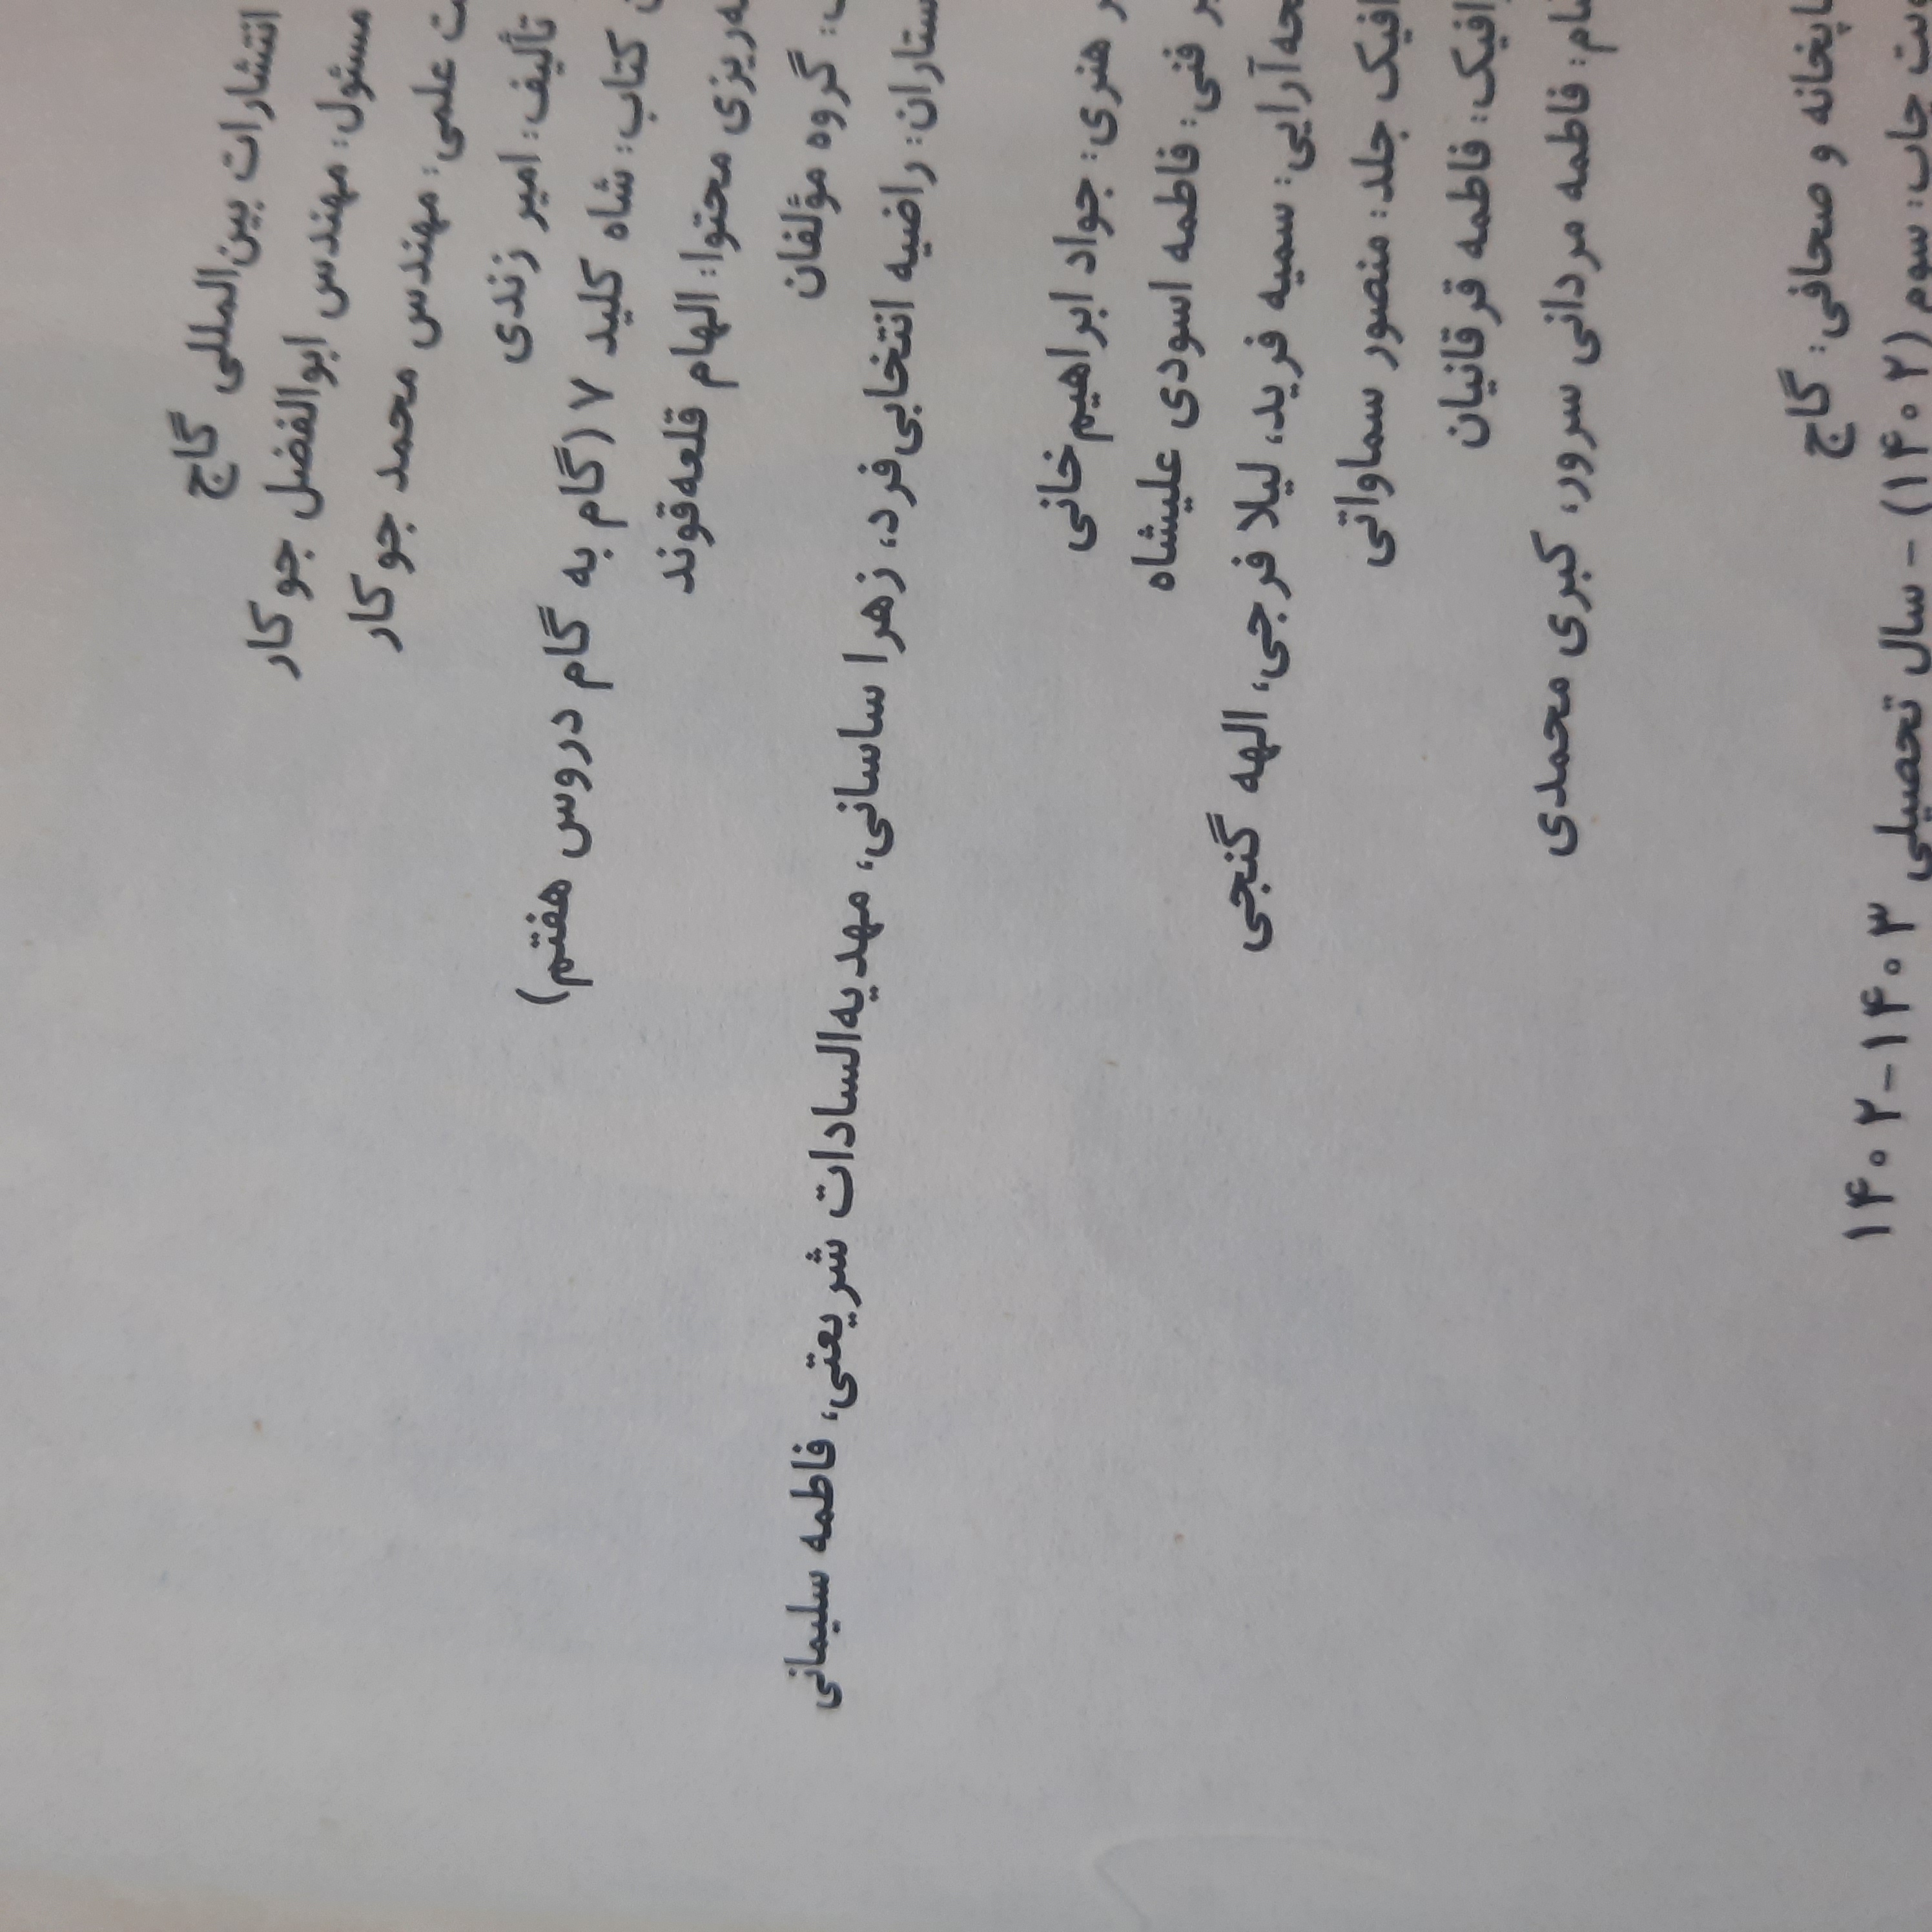 انتشارات بین‌المللی گاج
مسئول: مهندس ابوالفضل جوکار
علمی: مهندس محمد جوکار
تألیف: امیر زندی
کتاب: شاه کلید ۷ (گام به گام دروس هفتم)
محتوا: الهام قلعه‌قوند
گروه مؤلفان
راضیه انتخابی‌فرد، زهرا ساسانی، مهدیه‌السادات شریعتی، فاطمه سلیمانی
هنری: جواد ابراهیم‌خانی
فنی: فاطمه اسودی علیشاه
سمیه فرید، لیلا فرجی، الهه گنجی
جلد: منصور سماواتی
فاطمه قرقانیان
فاطمه مردانی سرود، کبری محمدی
و صحافی: گاج
چاپ: سوم (۱۴۰۲) - سال تحصیلی ۱۴۰۳-۱۴۰۲